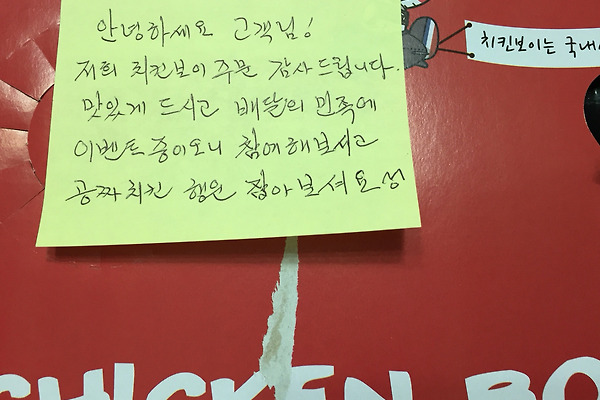 안녕하세요 고객님!
저희 치킨보이 주문 감사드립니다.
맛있게 드시고 배달의 민족에
이벤트중이오니 참여해보시고
공짜치킨 행운 잡아보셔요성
치킨보이는 국내
CHICKEN BO